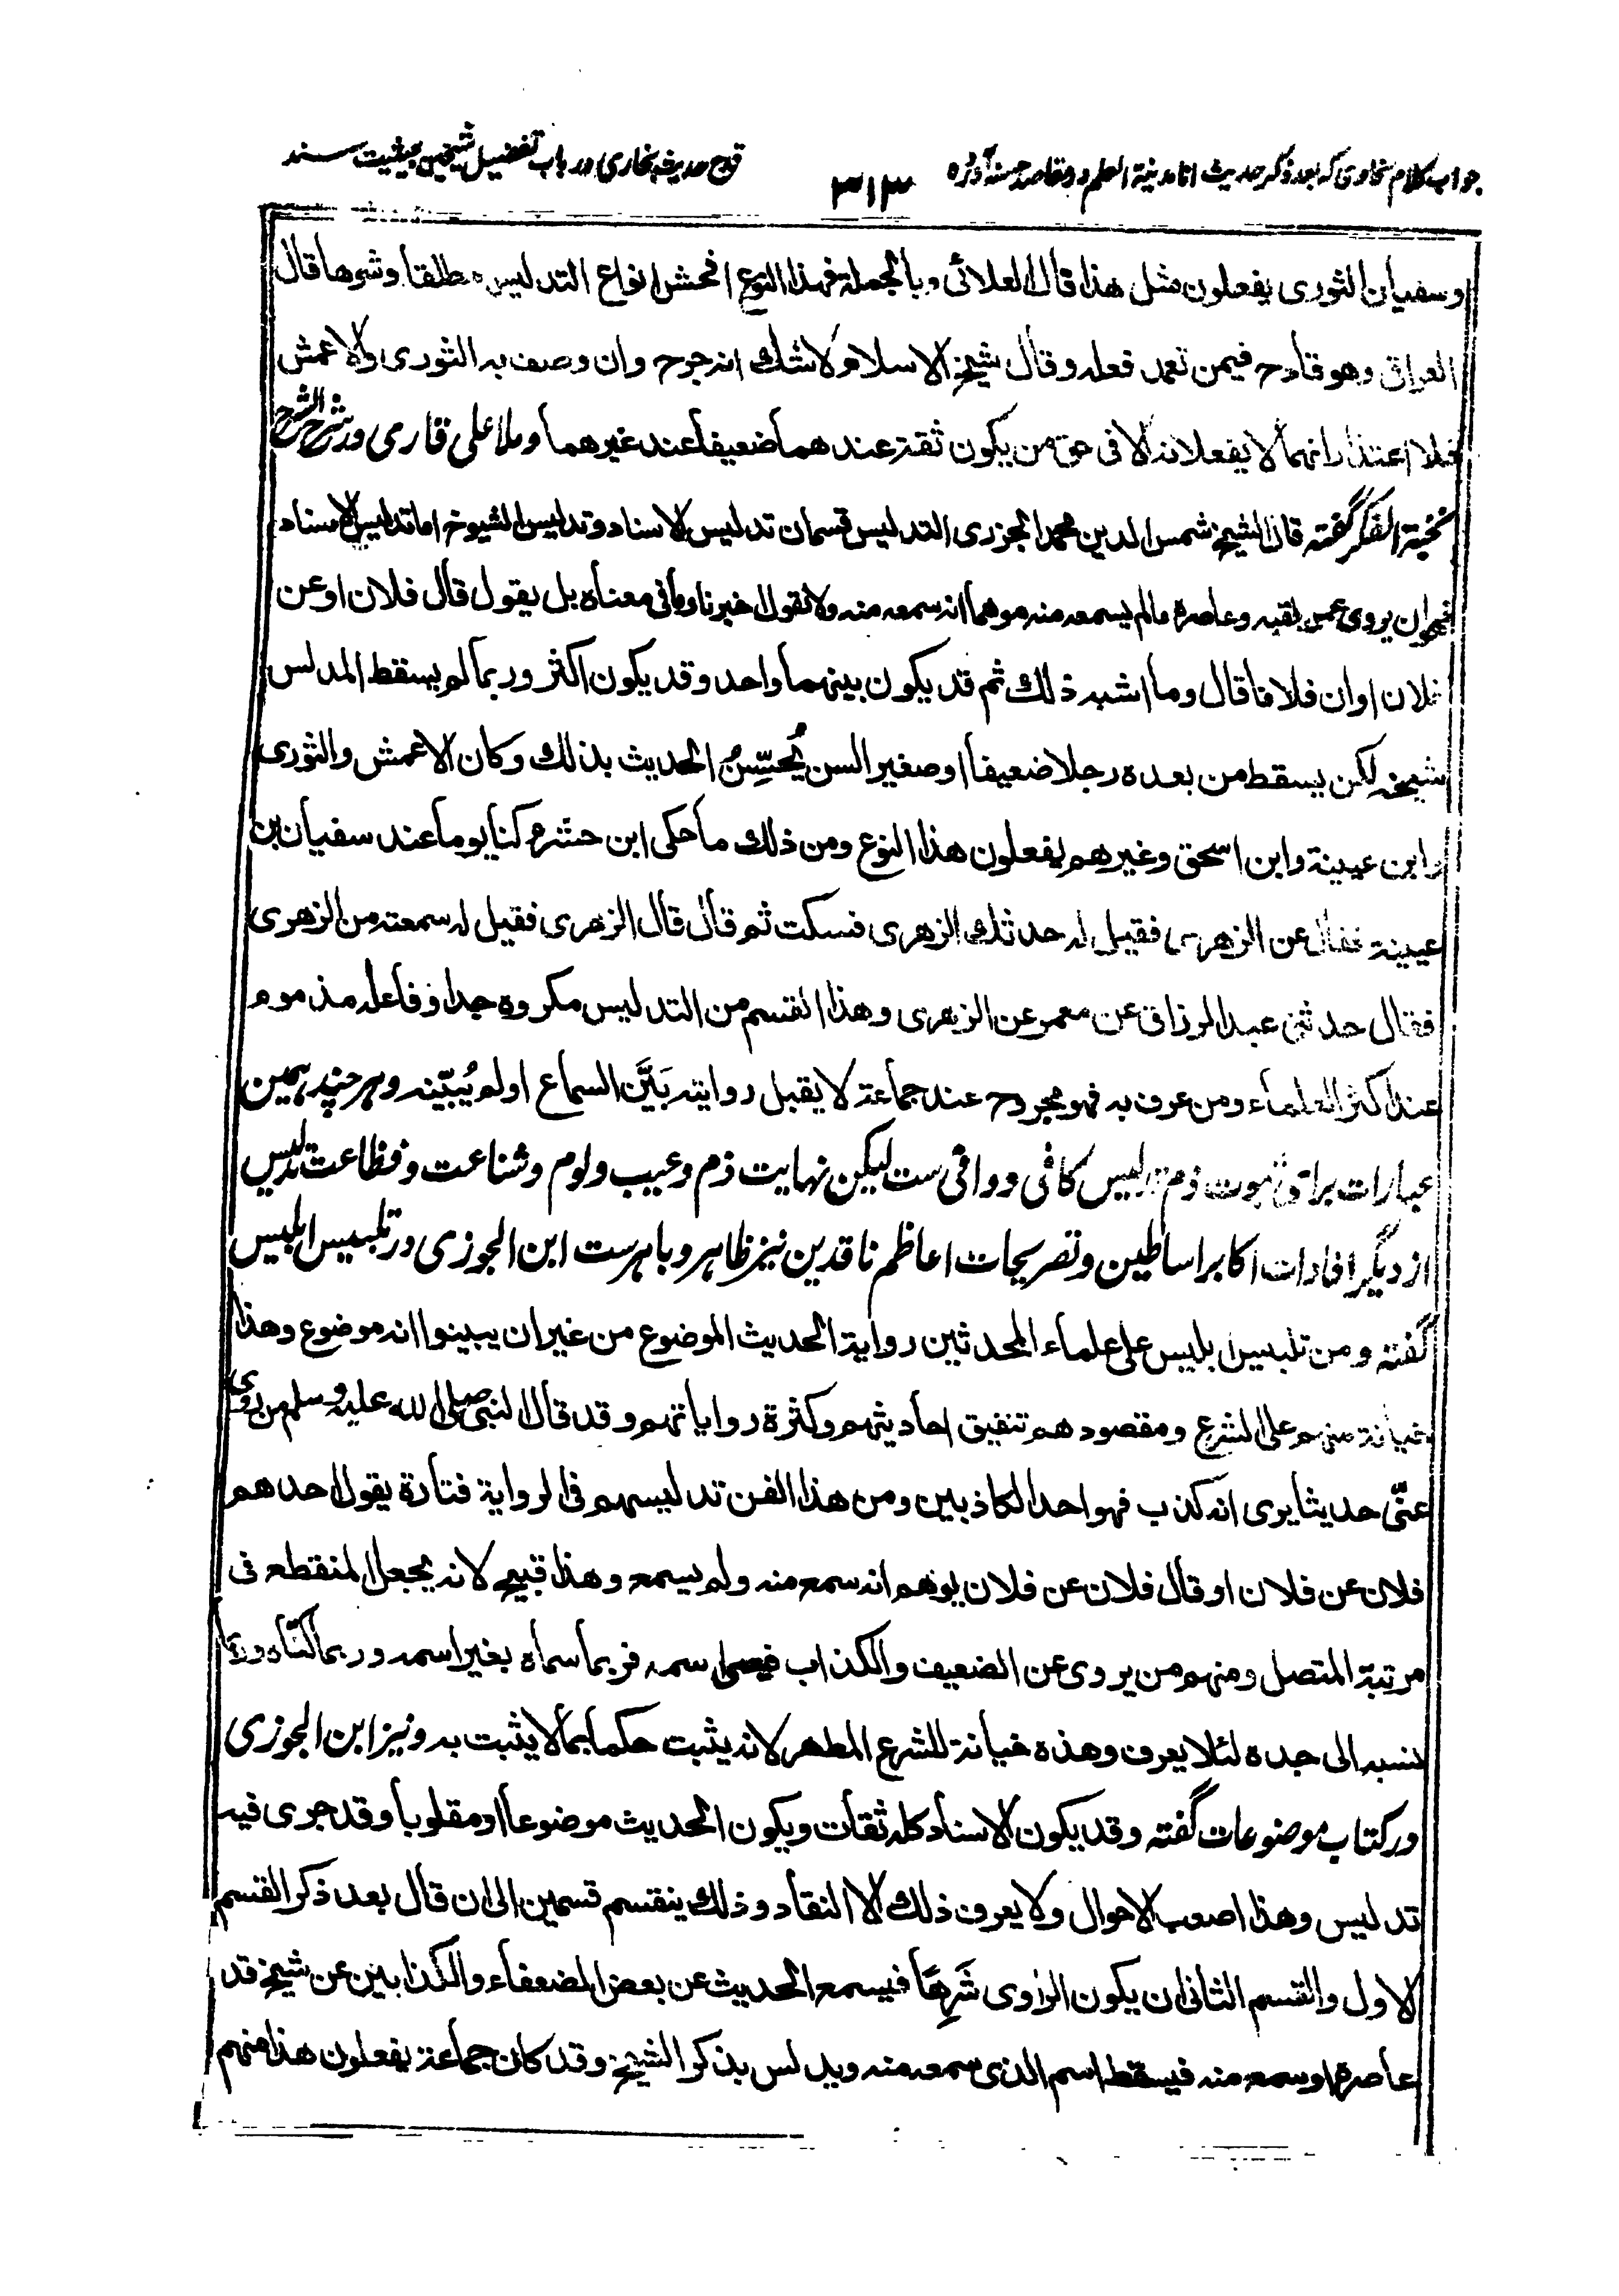 جواب کلام سخاوی که بعد ذکر حدیث انا مدینة العلم در مقاصد حسنه آورده
۳۱۳
قدح حدیث بخاری در باب تفضیل شیخین بحیثیت سند
وسفيان الثورى يفعلون مثل هذا قال العلائى وبالجملة فهذا النوع افحش انواع التدليس مطلقا وشرها قال
العراقى وهو قادح فيمن تعمد فعله وقال شيخ الاسلام لا شك انه جرح وان وصف به الثورى والاعمش
فلا اعتذار انهما لا يفعلانه الا فى حق من يكون ثقة عندهما ضعيفا عند غيرهما وملا على قارى در شرح الشرح
نخبة الفكر گفته قال الشيخ شمس الدين محمد الجزرى التدليس قسمان تدليس الاسناد وتدليس الشيوخ اما تدليس الاسناد
فهو ان يروى عمن لقيه وعاصره مالم يسمعه منه موهما انه سمعه منه ولا يقول اخبرنا وما فى معناه بل يقول قال فلان او عن
فلان او ان فلانا قال وما اشبه ذلك ثم قد يكون بينهما واحد وقد يكون اكثر وربما لم يسقط المدلس
شيخه لكن يسقط من بعده رجلا ضعيفا او صغير السن يُحسِّنُ الحديث بذلك وكان الاعمش والثورى
وابن عيينة وابن اسحق وغيرهم يفعلون هذا النوع ومن ذلك ما حكى ابن خشرم كنا يوما عند سفيان بن
عيينة فقال عن الزهرى فقيل له حدثك الزهرى فسكت ثم قال قال الزهرى فقيل له سمعته من الزهرى
فقال حدثنى عبد الرزاق عن معمر عن الزهرى وهذا القسم من التدليس مكروه جدا وفاعله مذموم
عند اكثر العلماء ومن عرف به فهو مجروح عند جماعة لا يقبل روايته بَيَّن السماع او لم يُبيّنه وهر چند همین
عبارات برای ثبوت ذم تدلیس کافی و وافی ست لیکن نهایت ذم وعیب ولوم وشناعت وفظاعت تدلیس
از دیگر افادات اکابر اساطین وتصریحات اعاظم ناقدین نیز ظاهر وباهر ست ابن الجوزی در تلبیس ابلیس
گفته ومن تلبيس ابليس على علماء المحدثين رواية الحديث الموضوع من غير ان يبينوا انه موضوع وهذا
خيانة منهم على الشرع ومقصودهم تنفيق احاديثهم وكثرة رواياتهم وقد قال النبى صلى الله عليه وسلم من روى
عنّى حديثا يرى انه كذب فهو احد الكاذبين ومن هذا الفن تدليسهم فى الرواية فتارة يقول احدهم
فلان عن فلان او قال فلان عن فلان يوهم انه سمعه منه ولم يسمعه وهذا قبيح لانه يجعل المنقطع فى
مرتبة المتصل ومنهم من يروى عن الضعيف والكذاب اسمه فربما سماه بغير اسمه وربما كنّاه وربما
نسبه الى جده لئلا يعرف وهذه خيانة للشرع المطهر لانه يثبت حكما بما لا يثبت به ونیز ابن الجوزى
در کتاب موضوعات گفته وقد يكون الاسناد كله ثقات ويكون الحديث موضوعا او مقلوبا وقد جرى فيه
تدليس وهذا اصعب الاحوال ولا يعرف ذلك الا النقاد وذلك ينقسم قسمين الى ان قال بعد ذكر القسم
الاول والقسم الثانى ان يكون الراوى شَرِهًا فيسمع الحديث عن بعض الضعفاء والكذابين عن شيخ قد
عاصره او سمعه منه فيسقط اسم الذى سمعه منه ويدلس بذكر الشيخ وقد كان جماعة يفعلون هذا منهم